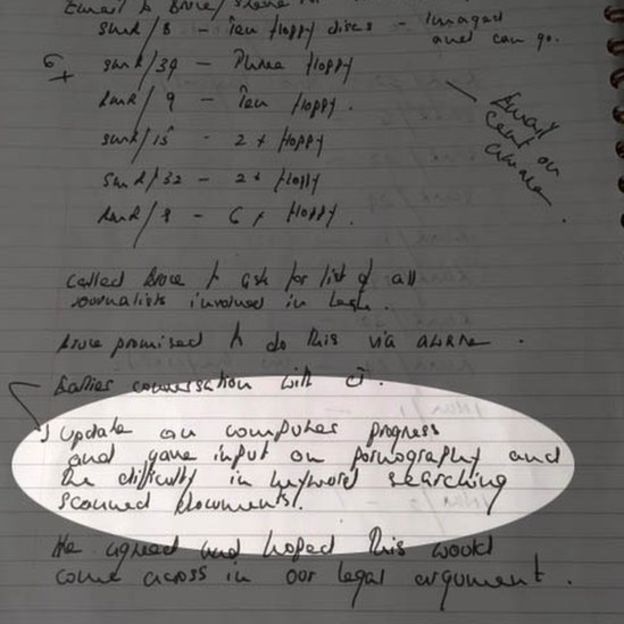 Email to Bruce/
SMR/8 – Ten floppy discs – Imaged
and can go.
6 x
SMR/39 – Three floppy
RMR/9 – Ten floppy.
SMR/15 - 2 x floppy
SMR/32 – 2 x floppy
RMR/8 – 6 x floppy.
Email
sent on
Called Bruce to ask for list of all
journalists involved in leak.
Bruce promised to do this via
Earlier conversation with
update on computer progress
and gave input on pornography and
the difficulty in keyword searching
scanned documents.
He agreed and hoped this would
come across in our legal argument.